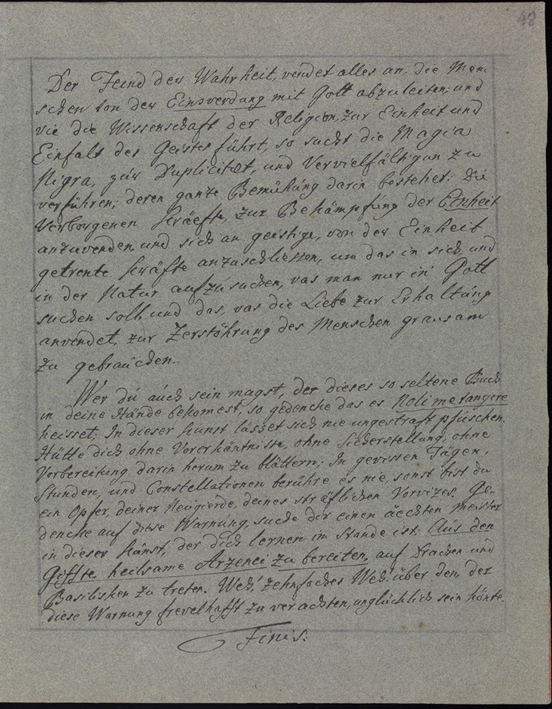 48
Der Feind der Wahrheit, vendet alles an, die Men-
schen von der Einsverdung mit Gott abzuleiten, und
vie die Wissenschaft der Religion, zur Einheit und
Einfalt des Geistes führt, so sucht die Magia
Nigra, zur Duplicität, und Vervielfältigun zu
verführen; deren ganze Bemühung darin bestehet: die
Verborgenen Kräffte, zur Bekämpfung der Einheit
anzuvenden und sich an geistige, von der Einheit
getrente Kräfte anzuschliessen, um das in sich, und
in der Natur aufzusuchen, vas man nur in Gott
suchen soll, und das, vas die Liebe zur Erhaltung
anvendet, zur Zerstöhrung des Menschen grausam
zu gebrauchen.
Wer du auch sein magst, der dieses so seltene Buch
in deine Hände bekomest, so gedencke das es Noli me tangere
heisset; In dieser Kunst lässet sich nie ungestraft pfuschen,
Hütte dich ohne Vorerkäntnisse, ohne Sicherstellung, ohne
Vorbereitung darin herum zu blättern; In gevissen Tägen,
Stunden, und Constellationen berühre es nie, sonst bist du
ein Opfer, deiner Neugierde, deines sträflichen Vorvizes. Ge-
dencke auf dise Warnung, suche dir einen äechten Meister
in dieser Kunst, der dich lernen im Stande ist, Aus den
Giffte, heilsame Arzenei zu bereiten, auf Drachen und
Basilisken zu treten. Weh! zehnfaches Weh! über den, der
diese Warnung frevelhafft zu verachten, unglücklich sein könte.
Finis.